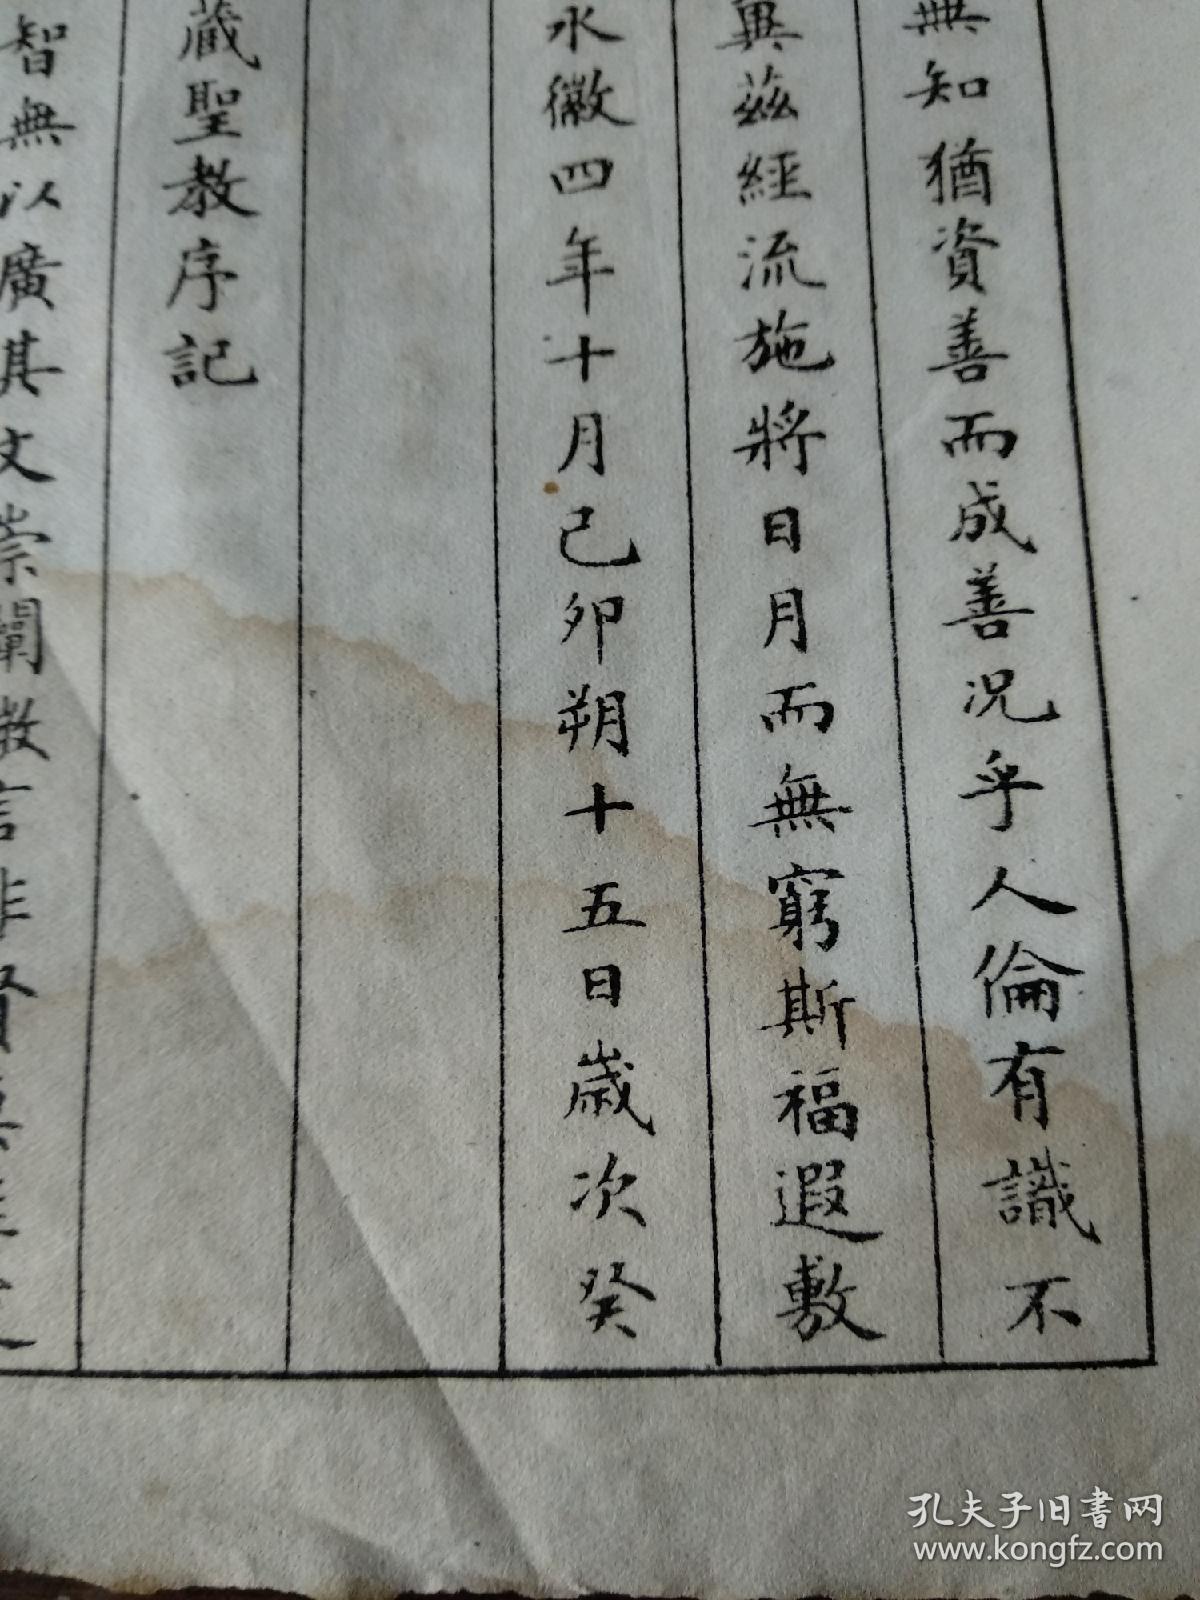 無知猶資善而成善況乎人倫有識不
與茲經流施將日月而無窮斯福遐敷
永徽四年十月己卯朔十五日歲次癸
藏聖教序記
智無以廣其文崇闡微言非賢莫
孔夫子旧书网
www.kongfz.com